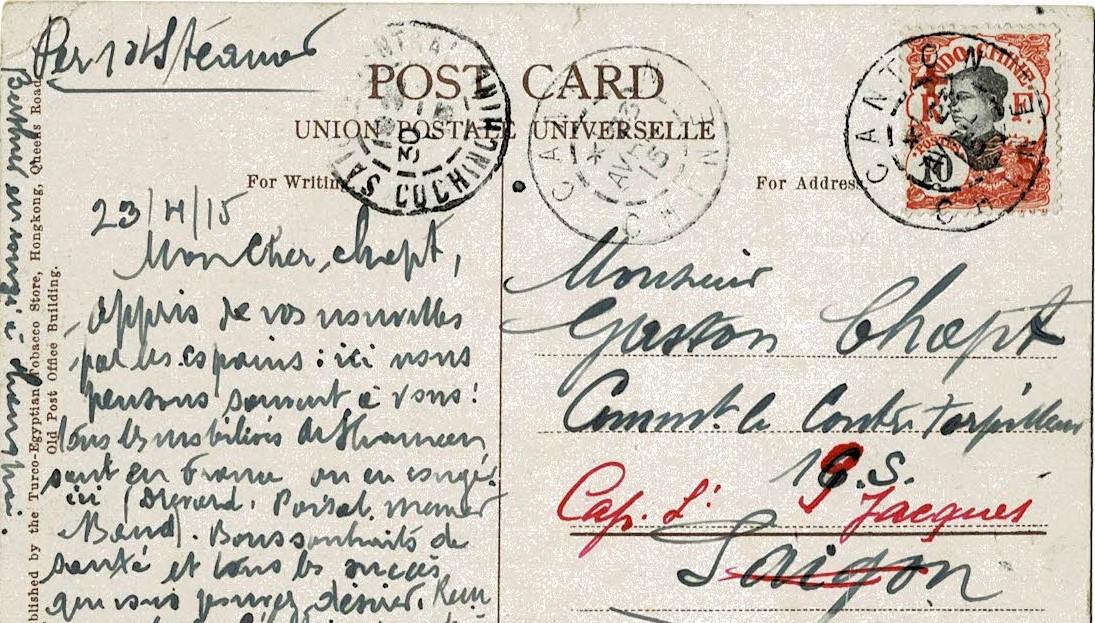 Per 1st Steamer
POST CARD
UNION POSTALE UNIVERSELLE
For Writing
For Address
CENTRAL
30
SAIGON COCHINCHINE
CANTON
AVR
15
CHINE
CANTON
CHINE
INDO-CHINE
R F
POSTES
10
23/4/15
Mon Cher Chept,
appris de vos nouvelles
par les copains : ici nous
pensons souvent à vous !
tous les mobilisés de Shameen
sont en France ou en congé
ici
Baud). Bons souhaits de
santé et tous les succès
que vous pouvez désirer.
Monsieur
Gaston Chept
Commt. le Contre Torpilleur
S.
Cap. St Jacques
Saigon
blished by the Turco-Egyptian Tobacco Store, Hongkong, Queens Road
Old Post Office Building.
en congé à Shanghai.